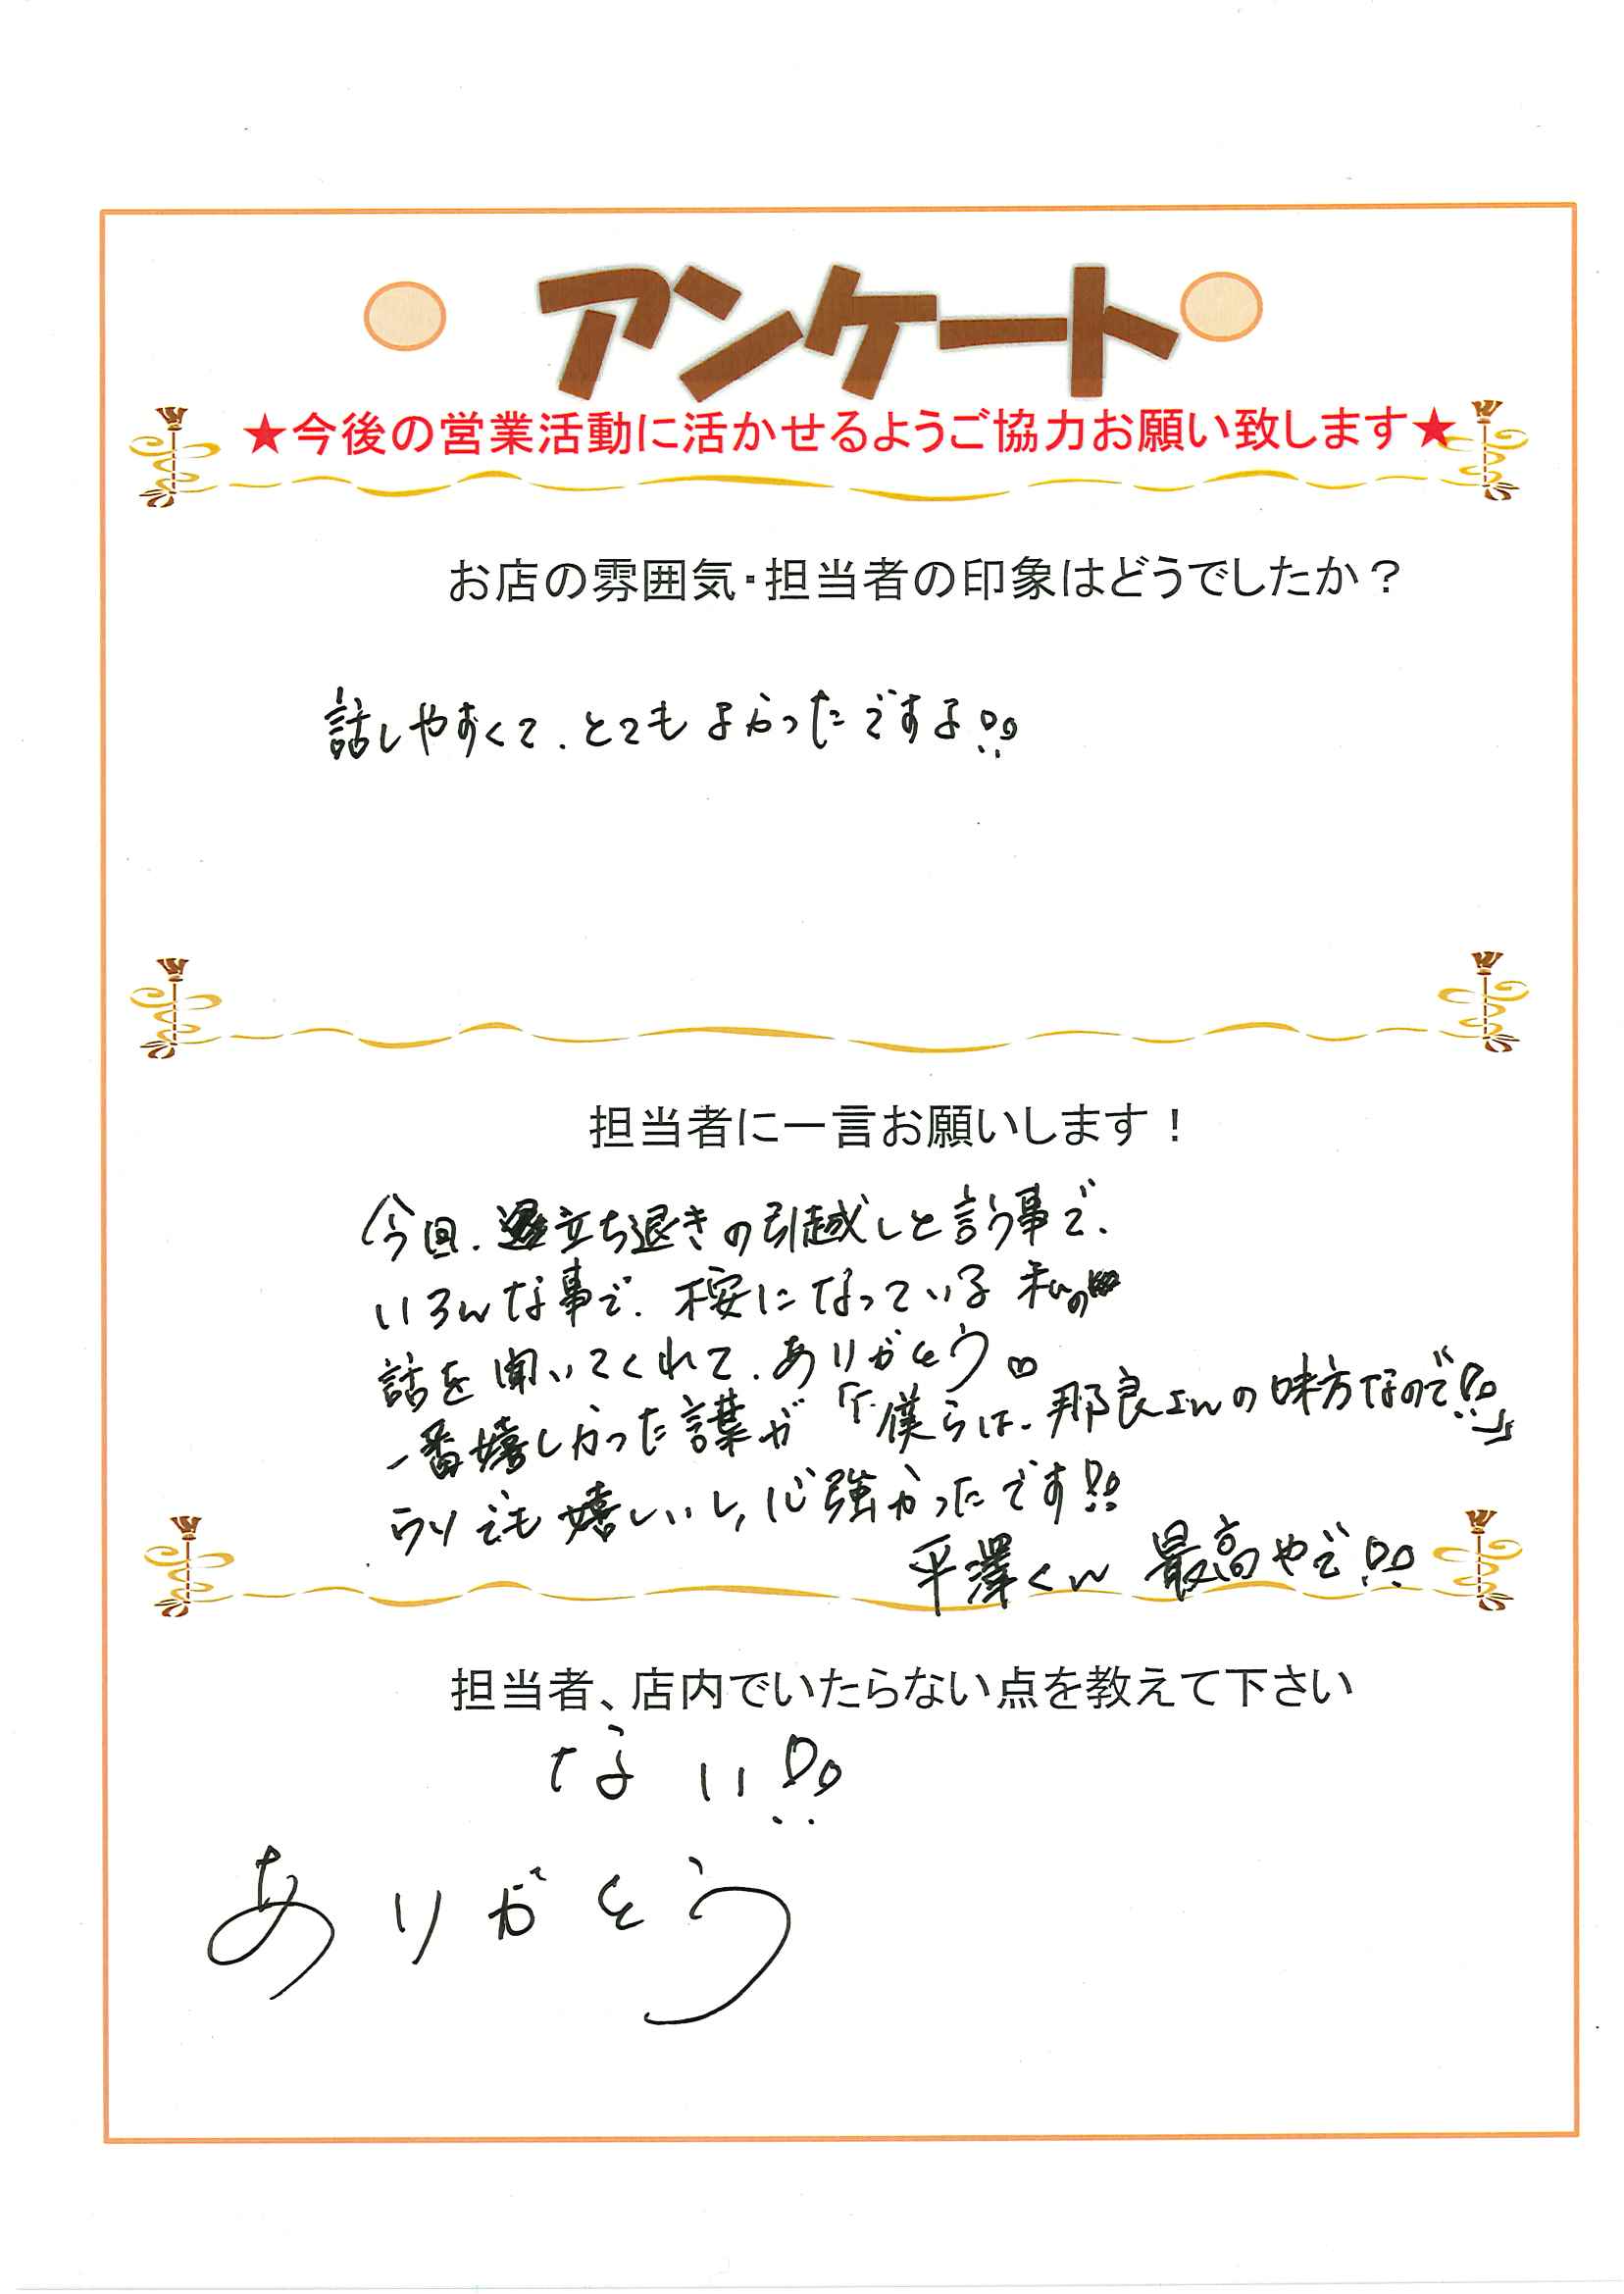 アンケート
★今後の営業活動に活かせるようご協力お願い致します★
お店の雰囲気・担当者の印象はどうでしたか？
話しやすくて、とてもよかったですよ!!
担当者に一言お願いします！
今回、立ち退きの引越しと言う事で、
いろんな事で、不安になっている私の
話を聞いてくれて、ありがとう♡
一番嬉しかった言葉が「僕らは、那良さんの味方なので!!」
ウソでも嬉しいし、心強かったです!!
平澤くん 最高やで!!
担当者、店内でいたらない点を教えて下さい
ない!!
ありがとう